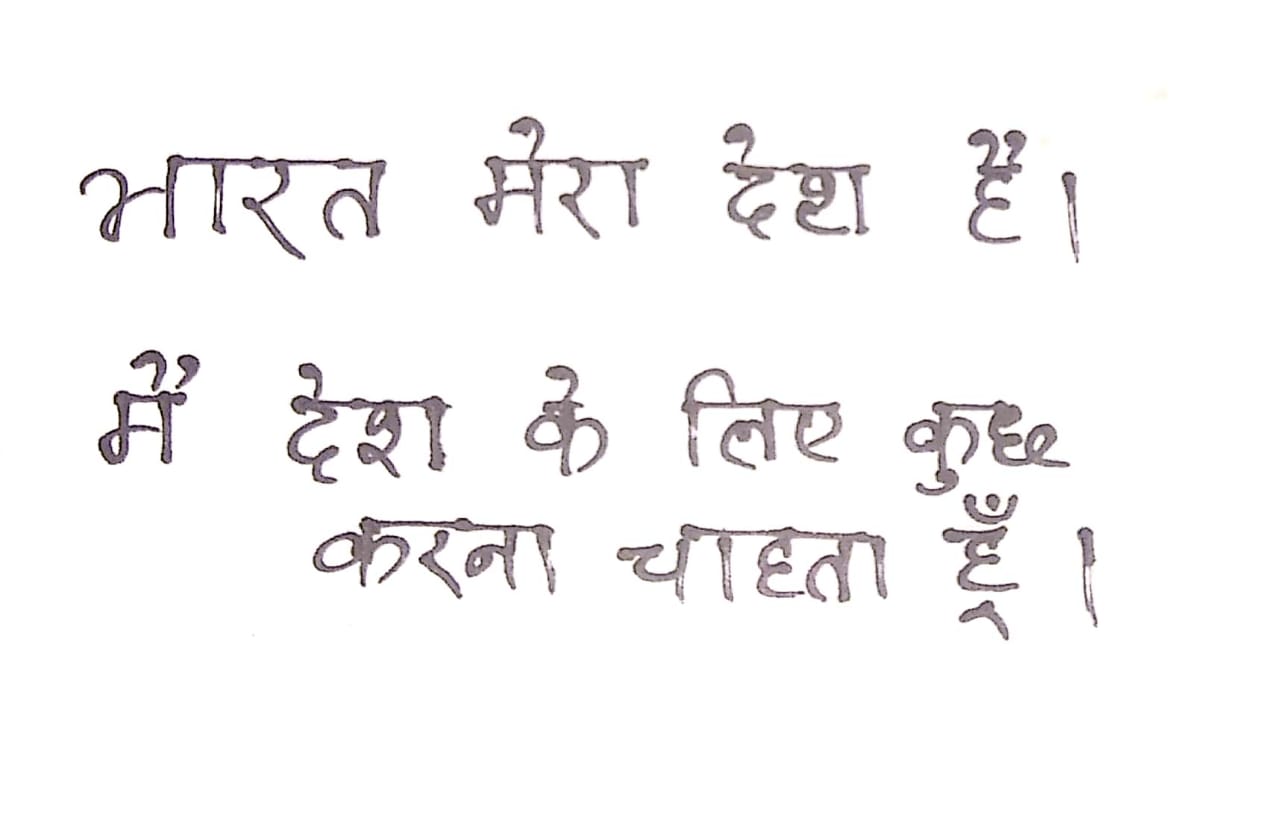 भारत मेरा देश है।
मैं देश के लिए कुछ
करना चाहता हूँ।